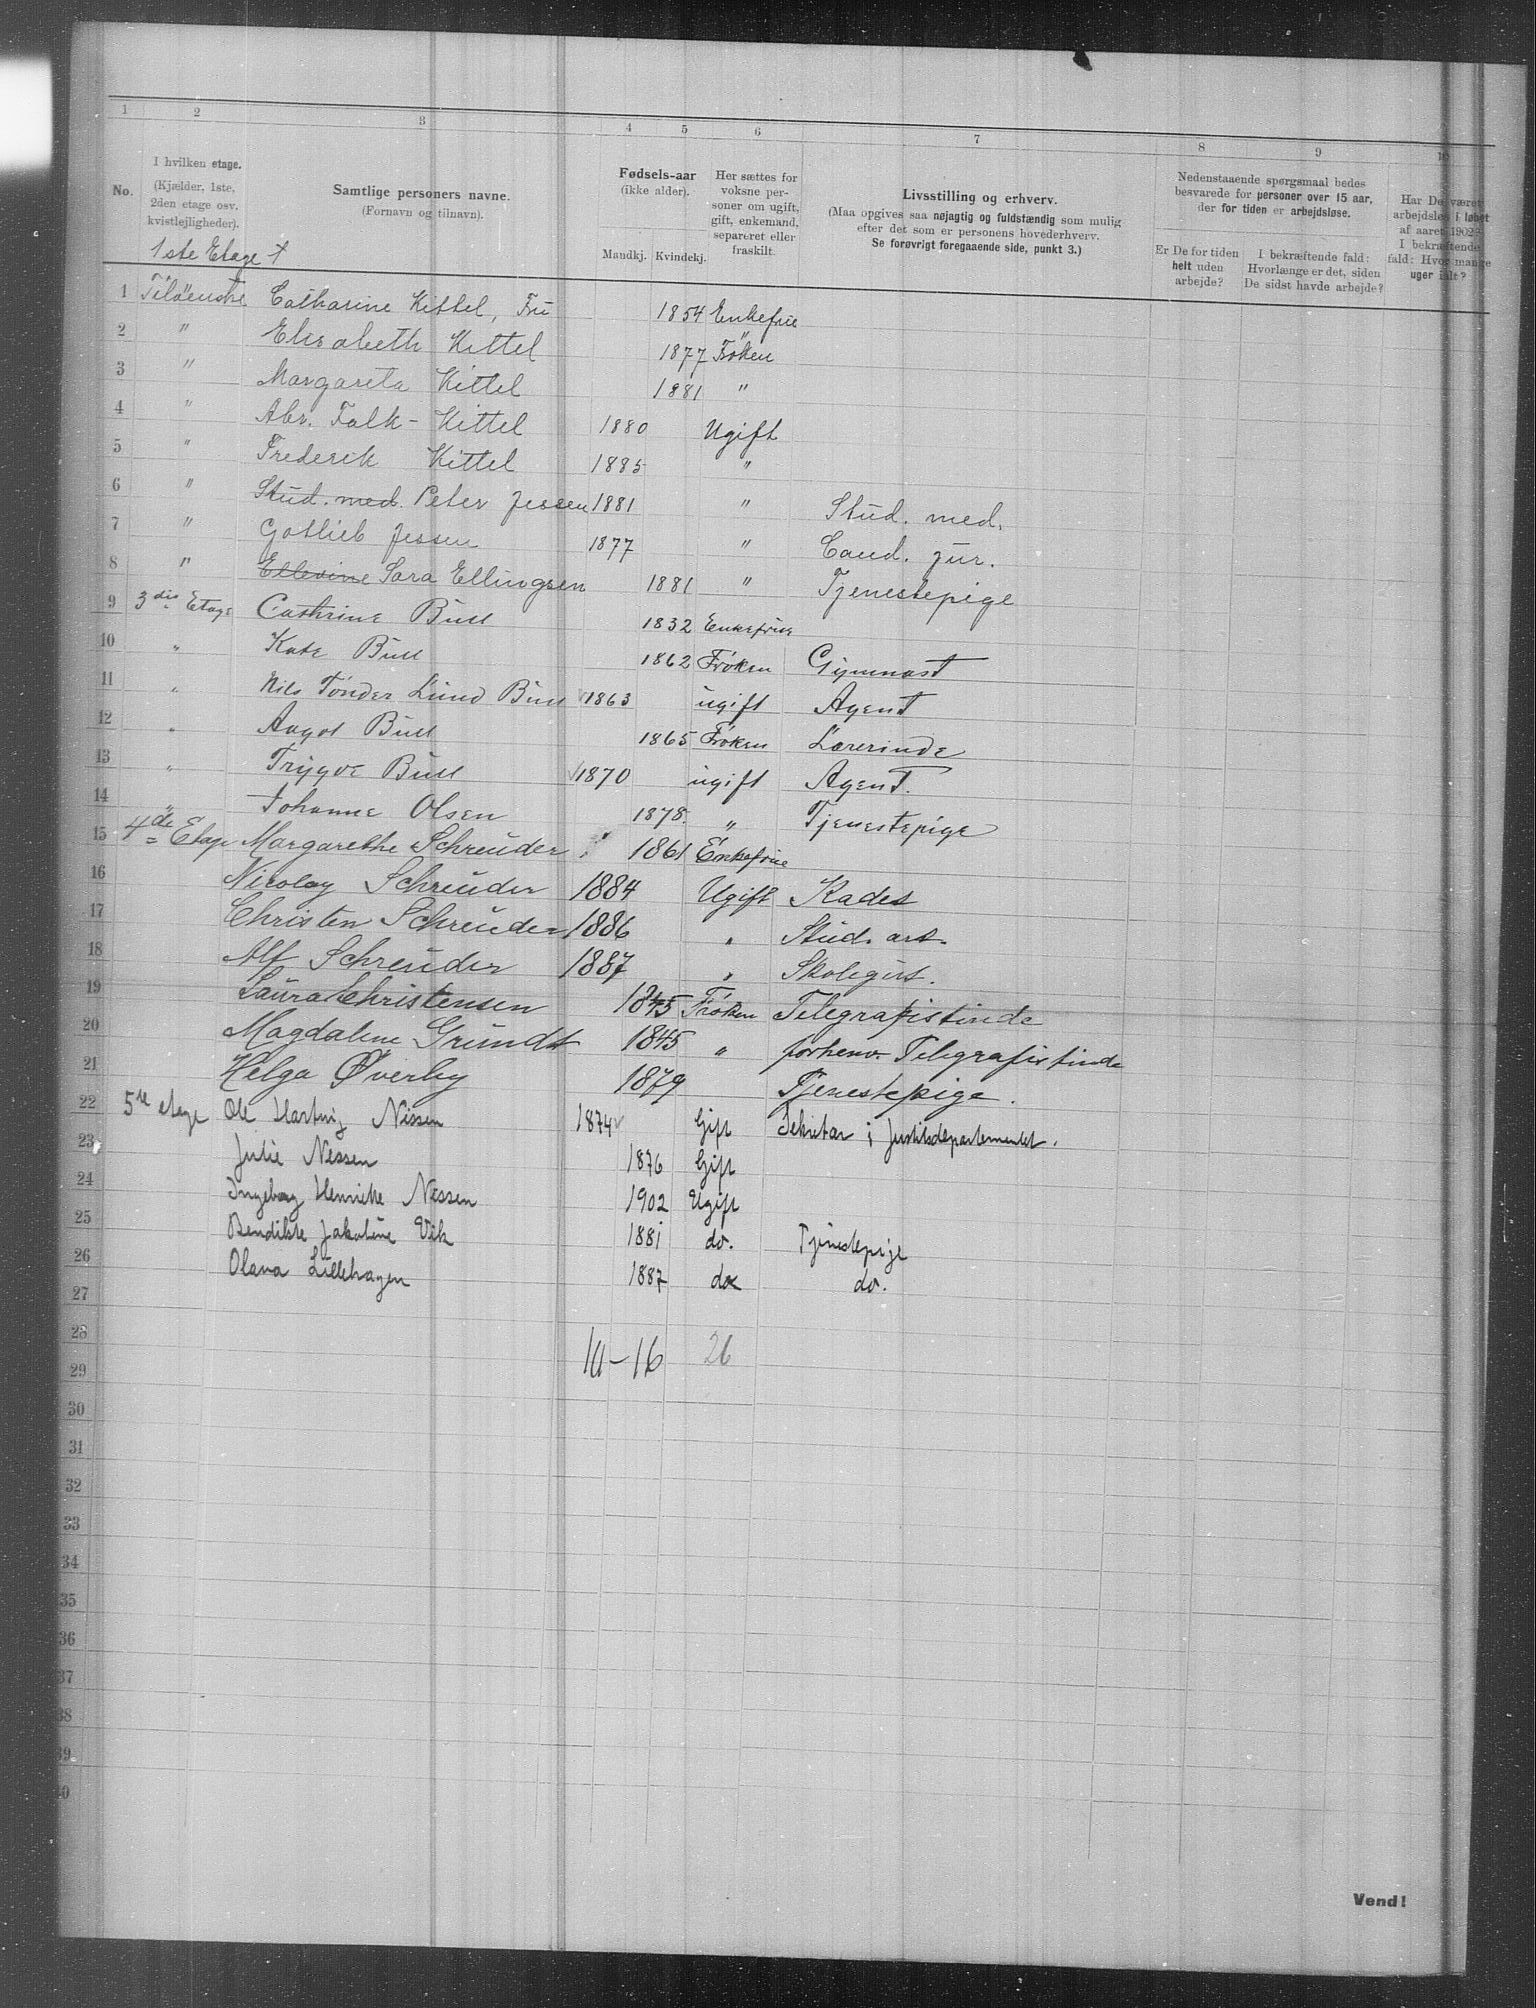 1 2 3 4 5 6 7 8 9 10
No.
I hvilken etage.
(Kjælder, 1ste,
2den etage osv.
kvistlejligheder).
Samtlige personers navne.
(Fornavn og tilnavn).
Fødsels-aar
(ikke alder).
Mandkj. Kvindekj.
Her sættes for
voksne per-
soner om ugift,
gift, enkemand,
separeret eller
fraskilt.
Livsstilling og erhverv.
(Maa opgives saa nøjagtig og fuldstændig som mulig
efter det som er personens hovederhverv.
Se forøvrigt foregaaende side, punkt 3.)
Nedenstaaende spørgsmaal bedes
besvarede for personer over 15 aar,
der for tiden er arbejdsløse.
Er De for tiden
helt uden
arbejde?
I bekræftende fald:
Hvorlænge er det, siden
De sidst havde arbejde?
Har De været
arbejdsløs i løbet
af aaret 1902?
I bekræftende
fald: Hvor mange
uger ialt?
1ste Etage t
1 Tiløenstre Catharine Kittel, Frú 1854 Enkefrúe
2 " Elisabeth Kittel 1877 Frøken
3 " Margareta Kittel 1881 "
4 " Abr. Falk-Kittel 1880 Ugift
5 " Frederik Kittel 1885 "
6 " Stúd. med. Peter Jessen 1881 " Stúd. med.
7 " Gotlieb Jessen 1877 " Cand. jur.
8 " Ellevine Sara Ellingsen 1881 " Tjenestepige
9 3die Etage Cathrine Búll 1832 Enkefrúe
10 " Kate Búll 1862 Frøken Gymnast
11 " Nils Tønder Lúnd Búll 1863 úgift Agent
12 " Aagot Búll 1865 Frøken Lærerinde
13 " Trygve Búll 1870 úgift Agent.
14 " Johanne Olsen 1878. " Tjenestepige
15 4de Etage Margarethe Schreúder 1861 Enkefrúe
16 Nicolay Schreúder 1884 Ugift Kadet
17 Christen Schreúder 1886 " Stúd. art.
18 Alf Schreúder 1887 " Skolegút.
19 Laura Christensen 1845 Frøken Telegrafistinde
20 Magdalene Grúndt 1845 " forhenv. Telegrafistinde
21 Helga Øverby 1879 Tjenestepige.
22 5te etage Ole Hartvig Nissen 1874 Gift Sekretær i Justitsdepartementet.
23 Julie Nissen 1876 Gift
24 Ingeborg Henrikke Nissen 1902 Ugift
25 Bendikte Jakobine Vik 1881 do. Tjenestepige
26 Olava Lillehagen 1887 do do.
27
28
29 10-16 26
30
31
32
33
34
35
36
37
38
39
40
Vend!